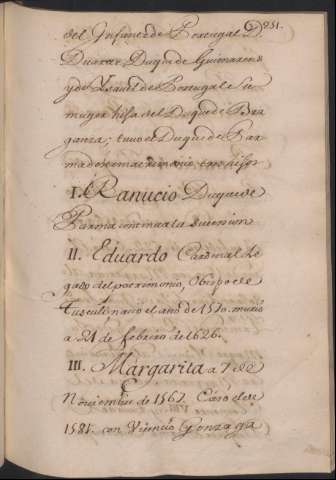 251.
del Infante de Portugal D.
Duarte, Duque de Guimaraens
y de Isavel de Portugal su
muger hija del Duque de Bra
ganza; tuvo el Duque de Par
ma de este matrimonio tres hijos
I. Ranucio Duque de
Parma continua la sucesion
II. Eduardo Cardenal Le
gado del patrimonio, Obispo de
Tusculi nacio el año de 1570. murio
a 21 de febrero de 1626.
III. Margarita a 7 de
Noviembre de 1567. Caso el de
1581. con Vicencio Gonzaga